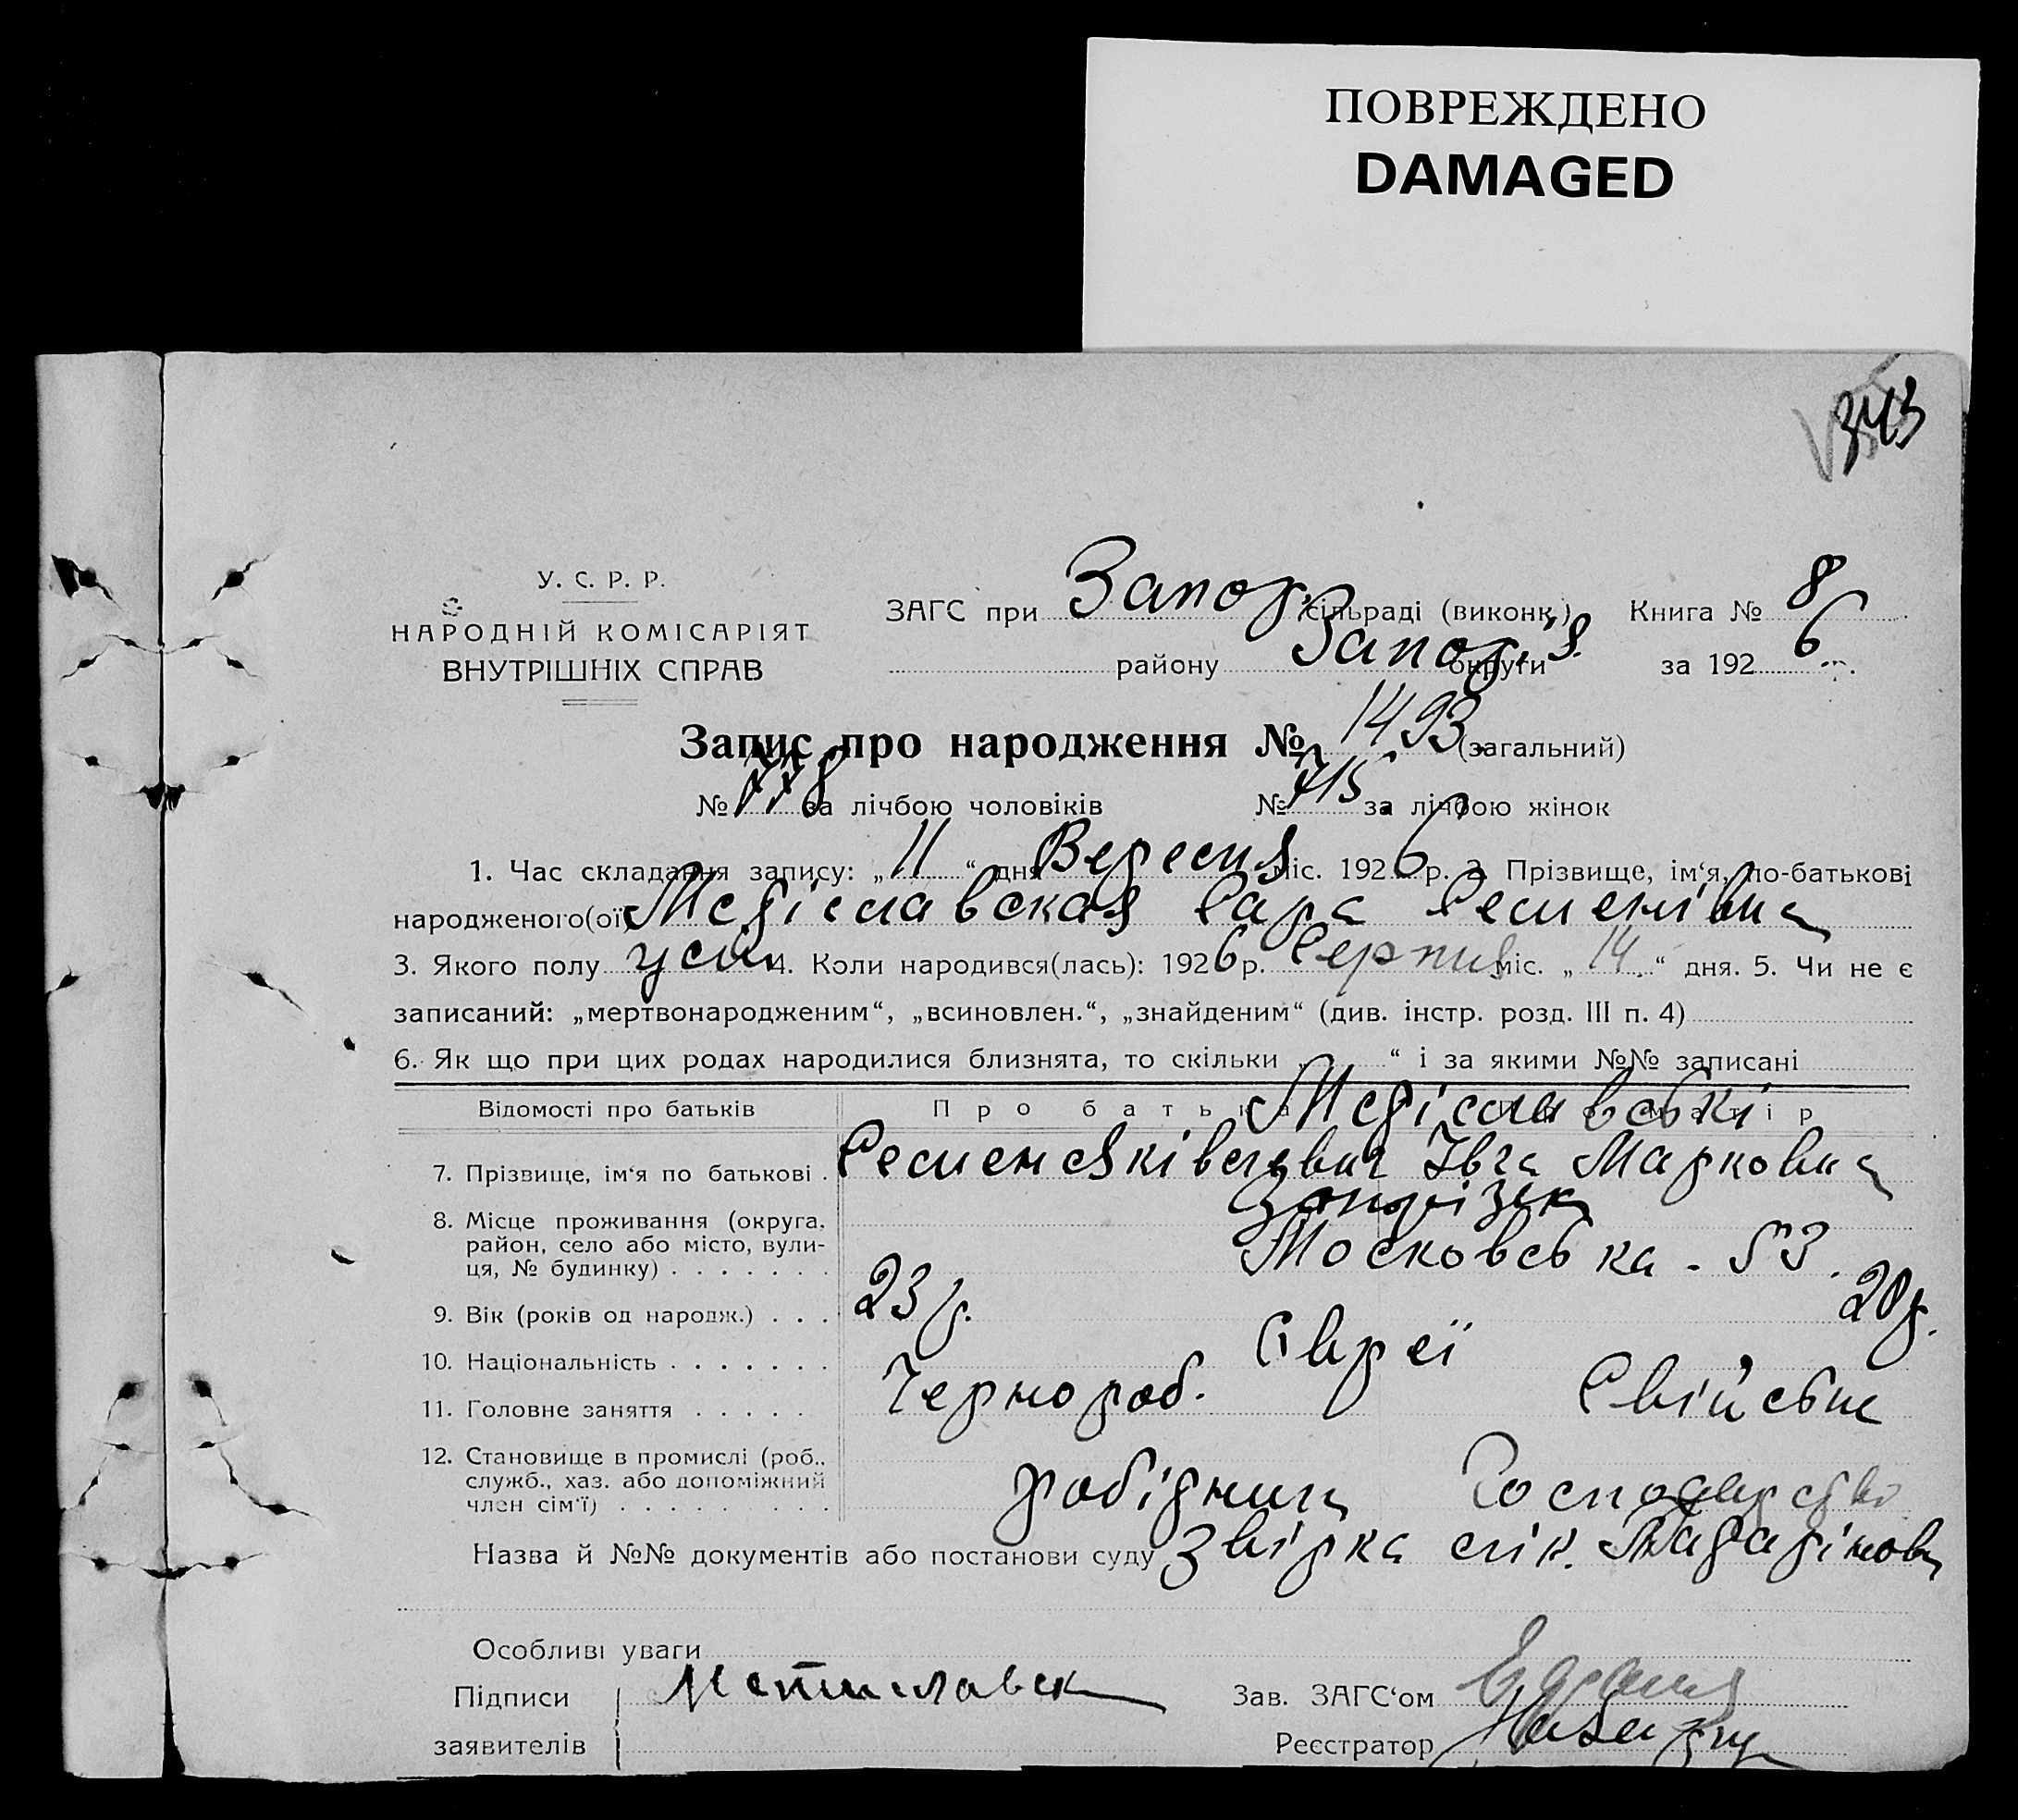 ПОВРЕЖДЕНО
DAMAGED
343
У. С. Р. Р.
НАРОДНІЙ КОМІСАРІЯТ
ВНУТРІШНІХ СПРАВ
ЗАГС при Запор. сільраді (виконк.) Книга № 8
району Запор. округи за 1926
Запис про народження № 1493 (загальний)
№ 778 за лічбою чоловіків № 715 за лічбою жінок
1. Час складання запису: „11“ дня Вересня міс. 1926 р. 2. Прізвище, ім‘я, по-батькові
народженого(ої) Сара Семенівна
3. Якого полу 4. Коли народився(лась): 1926 р. Серпня міс. „14“ дня. 5. Чи не є
записаний: „мертвонародженим“, „всиновлен.“, „знайденим“ (див. інстр. розд. III п. 4)
6. Як що при цих родах народилися близнята, то скільки „ “ і за якими №№ записані
Відомості про батьків Про батька Про матір
7. Прізвище, ім‘я по батькові . Семен Марковна
8. Місце проживання (округа, район, село або місто, вули-
ця, № будинку) . . . . . . . Московська - 53.
9. Вік (років од народж.) . . . 23 р. 20 р.
10. Національність . . . . . . . Євреї
11. Головне заняття . . . . . Чернороб. Свійське
12. Становище в промислі (роб.,
служб., хаз. або допоміжний
член сім‘ї) . . . . . . . . . робідник Господарство
Назва й №№ документів або постанови суду
Особливі уваги
Підписи Мстиславск Зав. ЗАГС‘ом
заявителів Реєстратор